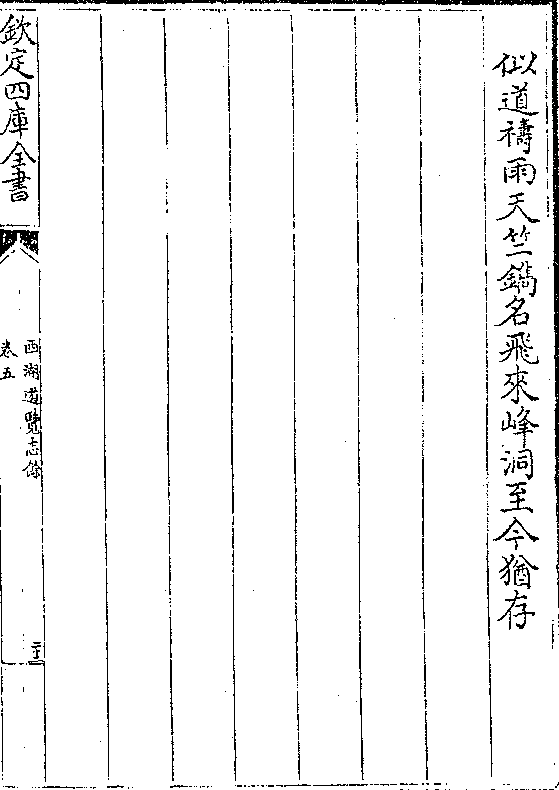 似道禱雨天竺鐫名飛來峰洞至今猶存
欽定四庫全書
西湖遊覽志餘
卷五